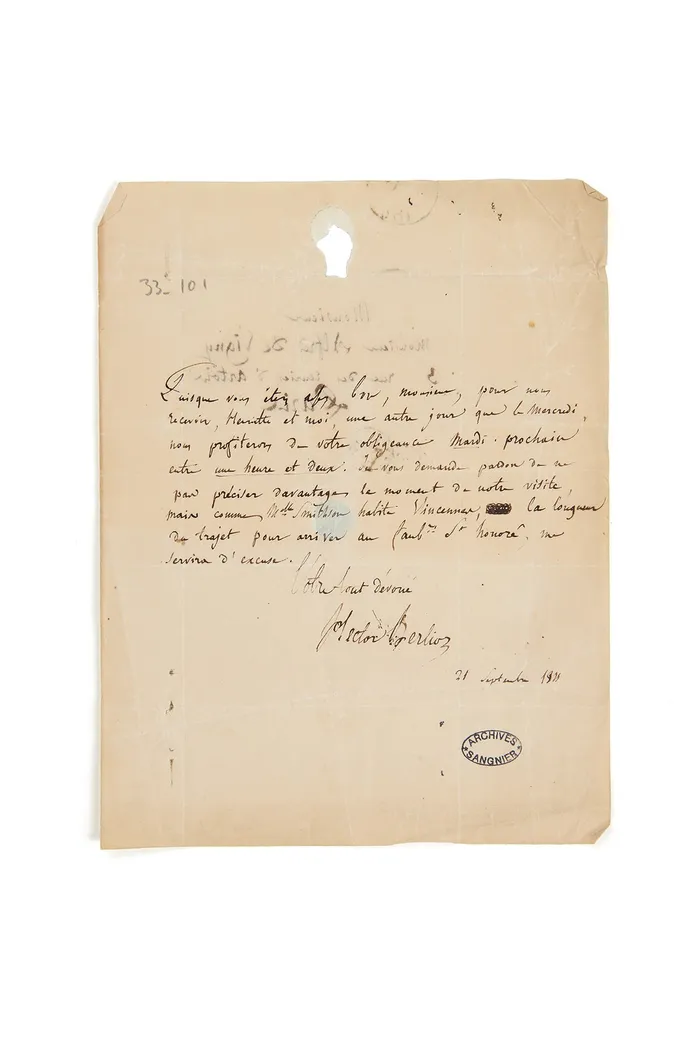 33_101
Puisque vous êtes assez bon, monsieur, pour nous
recevoir, Henriette et moi, une autre jour que le Mercredi,
nous profiterons de votre obligeance Mardi prochain
entre une heure et deux. Je vous demande pardon de ne
pas préciser davantage le moment de notre visite,
mais comme Mlle Smithson habite Vincennes, la longueur
du trajet pour arriver au faubg St honoré, me
servira d'excuse.
Votre tout dévoué
Hector Berlioz
21 septembre
ARCHIVES
SANGNIER
Monsieur
Monsieur Alfred de Vigny
3 rue d'Artois